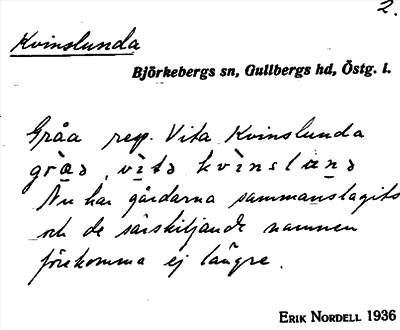 2.
Kvinslunda
Björkebergs sn, Gullbergs hd, Östg. l.
Gråa resp. Vita Kvinslunda
gròa̱ə, vìtə kvìnslu̱nə
Nu har gårdarna sammanslagits
och de särskiljande namnen
förekomma ej längre.
ERIK NORDELL 1936